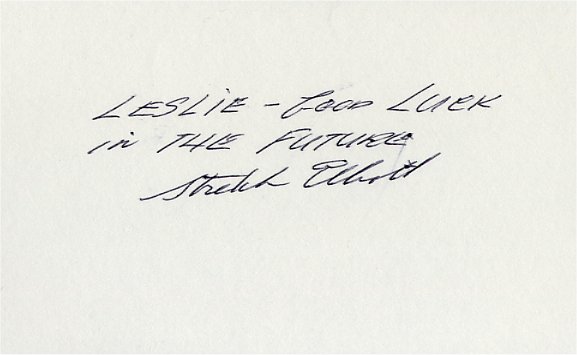 LESLIE - GOOD LUCK
in THE FUTURE
Stretch Elliott